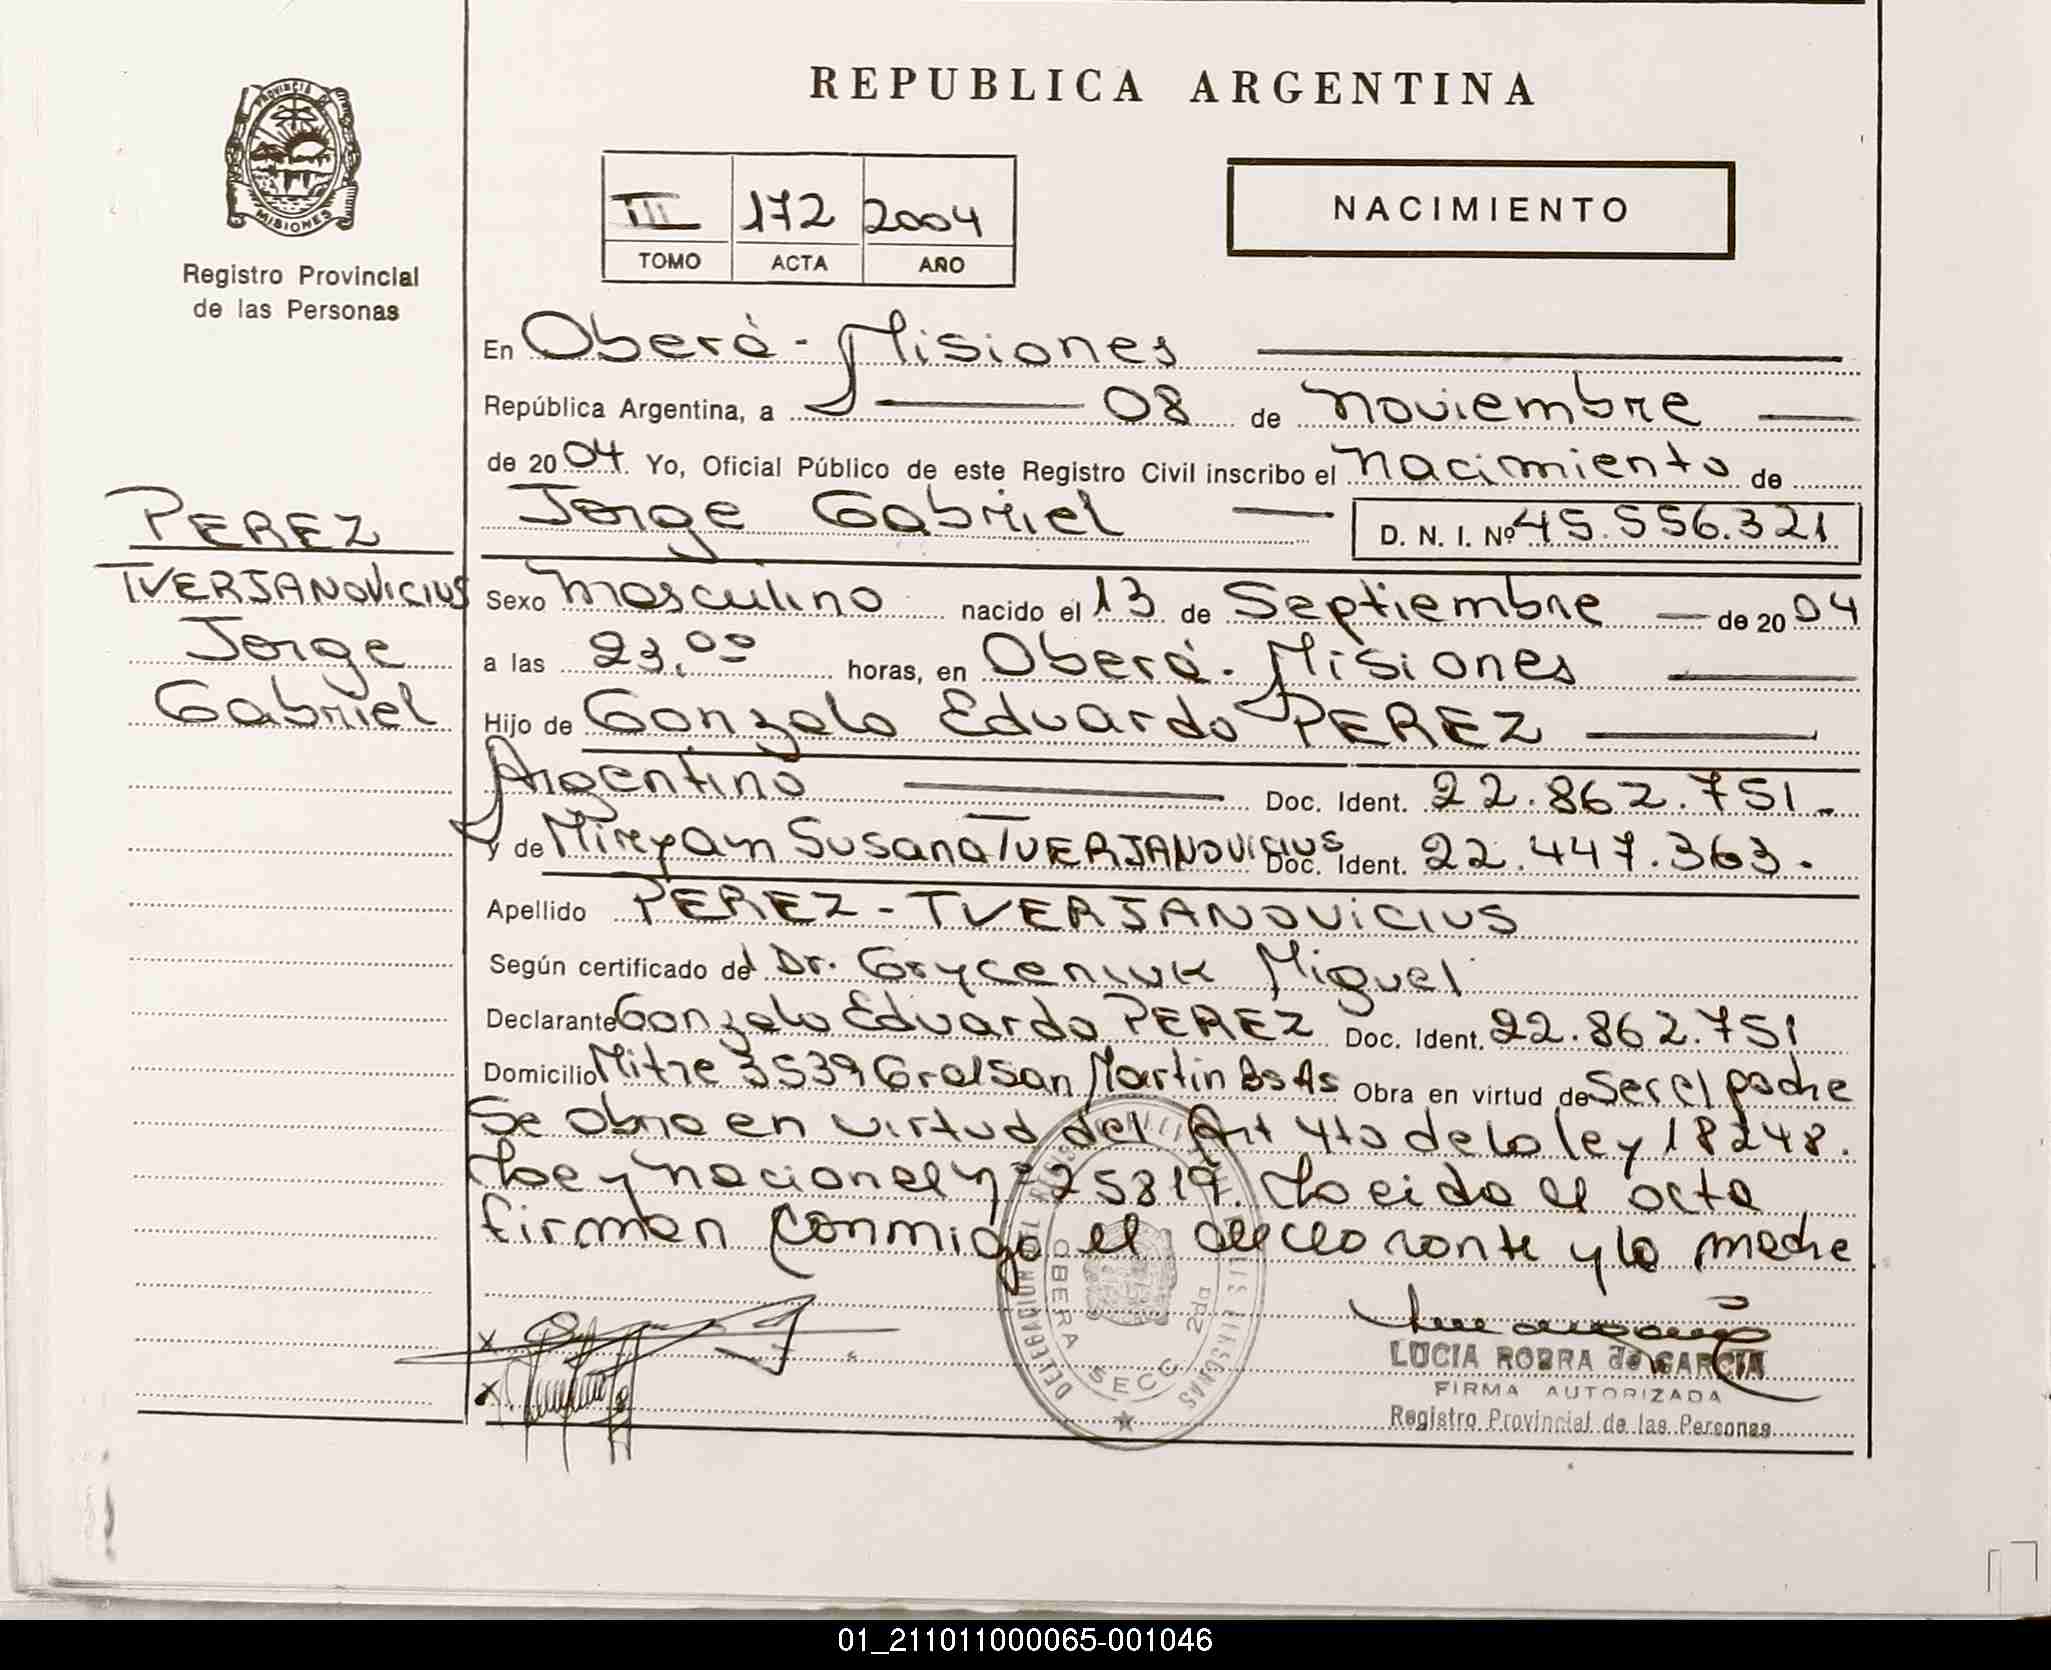 REPUBLICA ARGENTINA
PROVINCIA DE
MISIONES
Registro Provincial
de las Personas
III 172 2004
TOMO ACTA AÑO
NACIMIENTO
En Oberá - Misiones
República Argentina, a 08 de noviembre
de 2004. Yo, Oficial Público de este Registro Civil inscribo el nacimiento de
Jorge Gabriel D. N. I. Nº 45.556.321
PEREZ
TVERJANOVICIUS
Jorge
Gabriel
Sexo Masculino nacido el 13 de Septiembre de 2004
a las 23.00 horas, en Oberá - Misiones
Hijo de Gonzalo Eduardo PEREZ
Argentino Doc. Ident. 22.862.751.
y de Miryam Susana TVERJANOVICIUS Doc. Ident. 22.447.363.
Apellido PEREZ - TVERJANOVICIUS
Según certificado del Dr. Gryceniuk Miguel
Declarante Gonzalo Eduardo PEREZ Doc. Ident. 22.862.751
Domicilio Mitre 3539 Gral San Martin Bs As Obra en virtud de Ser el padre
Se obra en virtud del Art 4to de la ley 18248.
Ley Nacional nº 25819. Leida el acta
firman conmigo el declarante y la madre
x
x
DELEGACION
OBERA SECC 2da
LUCIA ROBRA de GARCIA
FIRMA AUTORIZADA
Registro Provincial de las Personas
01_211011000065-001046